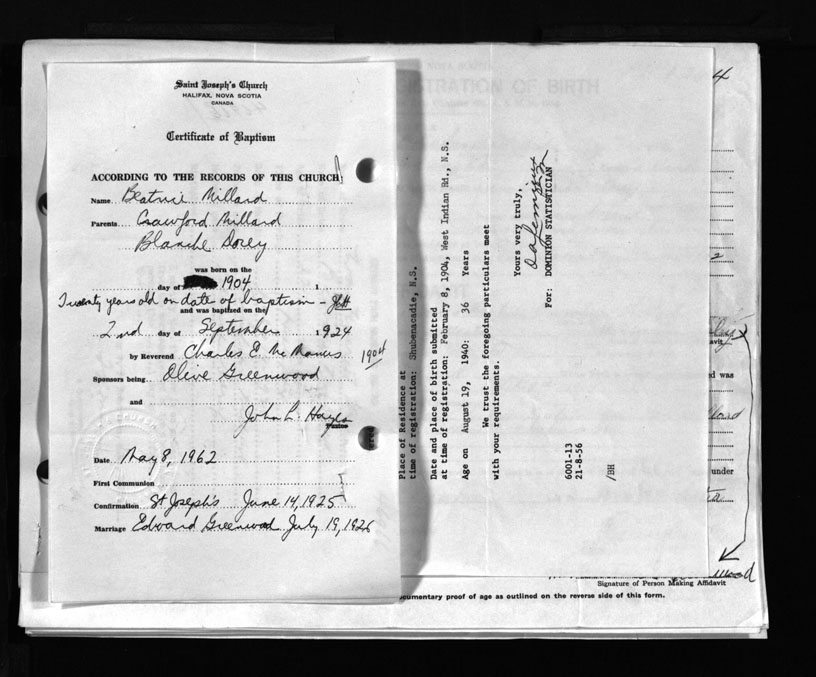 Saint Joseph's Church
HALIFAX, NOVA SCOTIA
CANADA
Certificate of Baptism
ACCORDING TO THE RECORDS OF THIS CHURCH
Name Beatrice Millard
Parents Crawford Millard
Blanche Dorey
was born on the
day of 1904 1
Twenty years old on date of baptism - JLH
and was baptized on the
2nd day of September 1924
by Reverend Charles E. McManus
1904
Sponsors being Olive Greenwood
and
John L. Hayes
Pastor
Date May 8, 1962
First Communion
Confirmation St Joseph's June 14, 1925
Marriage Edward Greenwood July 19, 1926
REGISTRATION OF BIRTH
Place of Residence at
time of registration: Shubenacadie, N.S.
Date and place of birth submitted
at time of registration: February 8, 1904, West Indian Rd., N.S.
Age on August 19, 1940: 36 Years
We trust the foregoing particulars meet
with your requirements.
Yours very truly,
For: DOMINION STATISTICIAN
6001-13
21-8-56
/BH
4
2
d was
under
Signature of Person Making Affidavit
ocumentary proof of age as outlined on the reverse side of this form.